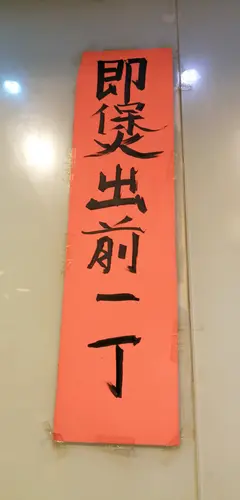 即煲出前一丁